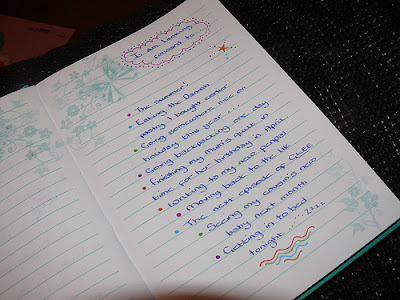 I am looking
forward to
The summer!
Eating the Danish
pastry I bought earlier
Going somewhere nice on
holiday this year.....
Going backpacking one day
Finishing my mum's quilt in
time for her birthday in April.
Working to my new project
Moving back to the UK
The next episode of GLEE
Seeing my cousin's new
baby next month
Getting in to bed
tonight.....zzzz